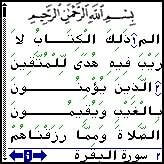 بِسْمِ اللَّهِ الرَّحْمَٰنِ الرَّحِيمِ
الم ذَلِكَ الْكِتَابُ لَا
رَيْبَ فِيهِ هُدًى لِلْمُتَّقِينَ
الَّذِينَ يُؤْمِنُونَ
بِالْغَيْبِ وَيُقِيمُونَ
الصَّلَاةَ وَمِمَّا رَزَقْنَاهُمْ
سورة البقرة